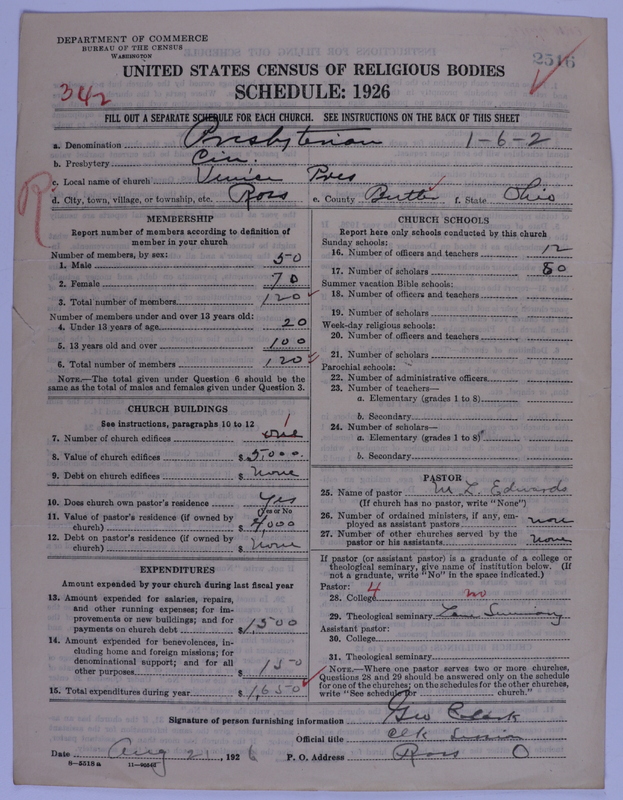 DEPARTMENT OF COMMERCE
BUREAU OF THE CENSUS
WASHINGTON
2516
UNITED STATES CENSUS OF RELIGIOUS BODIES
342
SCHEDULE: 1926
FILL OUT A SEPARATE SCHEDULE FOR EACH CHURCH. SEE INSTRUCTIONS ON THE BACK OF THIS SHEET
a. Denomination Presbyterian 1-6-2
b. Presbytery Cin.
c. Local name of church Venice Pres
d. City, town, village, or township, etc. Ross e. County Butler f. State Ohio
R.
MEMBERSHIP
Report number of members according to definition of
member in your church
Number of members, by sex:
1. Male 50
2. Female 70
3. Total number of members 120
Number of members under and over 13 years old:
4. Under 13 years of age 20
5. 13 years old and over 100
6. Total number of members 120
NOTE.—The total given under Question 6 should be the
same as the total of males and females given under Question 3.
CHURCH BUILDINGS
See instructions, paragraphs 10 to 12
7. Number of church edifices one 1
8. Value of church edifices $ 5,000.
9. Debt on church edifices $ none
10. Does church own pastor's residence yes
Yes or No
11. Value of pastor's residence (if owned by
church) $ 4,000
12. Debt on pastor's residence (if owned by
church) $ none
EXPENDITURES
Amount expended by your church during last fiscal year
13. Amount expended for salaries, repairs,
and other running expenses; for im-
provements or new buildings; and for
payments on church debt $ 1,500
14. Amount expended for benevolences, in-
cluding home and foreign missions; for
denominational support; and for all
other purposes $ 150
15. Total expenditures during year $ 1,650
CHURCH SCHOOLS
Report here only schools conducted by this church
Sunday schools:
16. Number of officers and teachers 12
17. Number of scholars 80
Summer vacation Bible schools:
18. Number of officers and teachers
19. Number of scholars
Week-day religious schools:
20. Number of officers and teachers
21. Number of scholars
Parochial schools:
22. Number of administrative officers
23. Number of teachers—
a. Elementary (grades 1 to 8)
b. Secondary
24. Number of scholars—
a. Elementary (grades 1 to 8)
b. Secondary
PASTOR
25. Name of pastor M. L. Edwards
(If church has no pastor, write "None")
26. Number of ordained ministers, if any, em-
ployed as assistant pastors none
27. Number of other churches served by the
pastor or his assistants none
If pastor (or assistant pastor) is a graduate of a college or
theological seminary, give name of institution below. (If
not a graduate, write "No" in the space indicated.)
Pastor: 4
28. College no
29. Theological seminary Lane Seminary
Assistant pastor:
30. College
31. Theological seminary
NOTE.—Where one pastor serves two or more churches,
Questions 28 and 29 should be answered only on the schedule
for one of the churches; on the schedules for the other churches,
write "See schedule for church."
Signature of person furnishing information Geo
Official title Clk Session
Date Aug 21, 1926 P. O. Address Ross O
8-5518 a